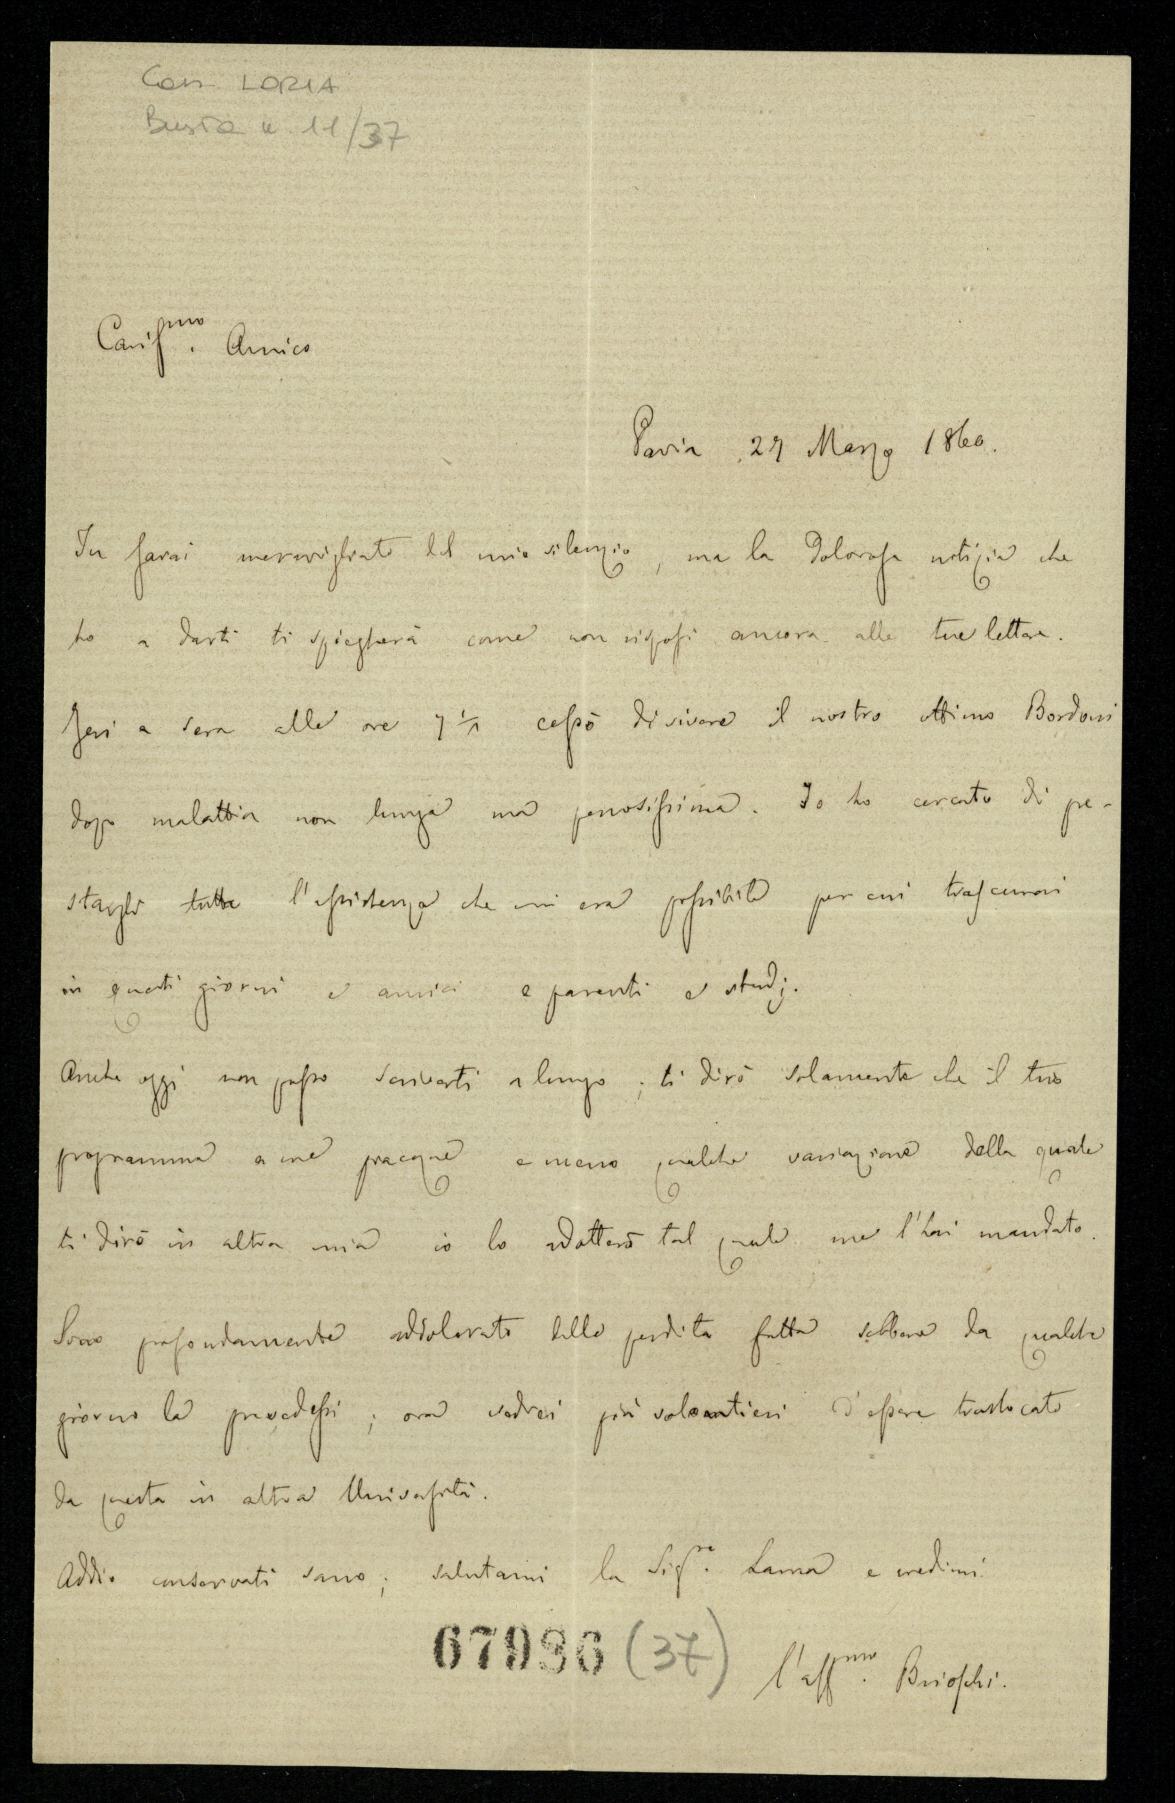 Cass. LORIA
Busta n. 11/37
Cariss.mo Amico
Pavia 27 Marzo 1860.
Tu sarai meravigliato del mio silenzio, ma la dolorosa notizia che
ho a darti ti spiegherà come non risposi ancora alle tue lettere.
Jeri a sera alle ore 7 1/2 cessò di vivere il nostro ottimo Bordoni
dopo malattia non lunga ma penosissima. Io ho cercato di pre-
stargli tutta l'assistenza che mi era possibile per cui trascurai
in questi giorni e amici e parenti e studj.
Anche oggi non posso scriverti a lungo; ti dirò solamente che il tuo
programma a me piacque e meno qualche variazione della quale
ti dirò in altra mia io lo adotterò tal quale me l'hai mandato.
Sono profondamente addolorato della perdita fatta sebbene da qualche
giorno la prevedessi; ora vedrei più volontieri d'essere traslocato
da questa in altra Università.
Addio conservati sano; salutami la Sig.ra e credimi
67986 (37)
l'aff.mo Brioschi.